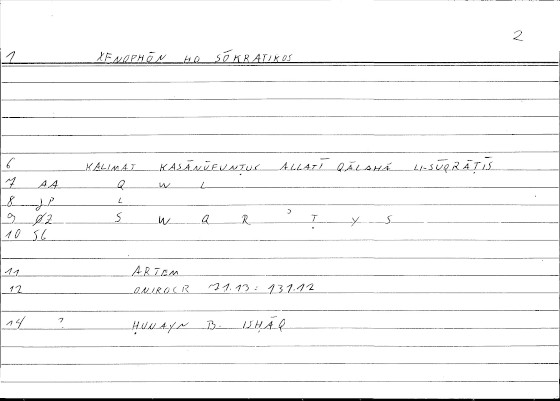 2
1 XENOPHŌN HO SŌKRATIKOS
6 KALIMAT KASĀNŪFUNṬUS ALLATĪ QĀLAHĀ LI-SŪQRĀṬĪS
7 AA Q W L
8 JP L
9 Ø2 S W Q R ʾ Ṭ Y S
10 56
11 ARTEM
12 ONIROCR 71.13: 131.12
14 ? ḤUNAYN B. ISḤĀQ